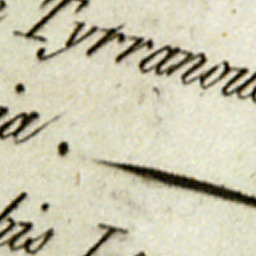 Tyrranou
ia.
his